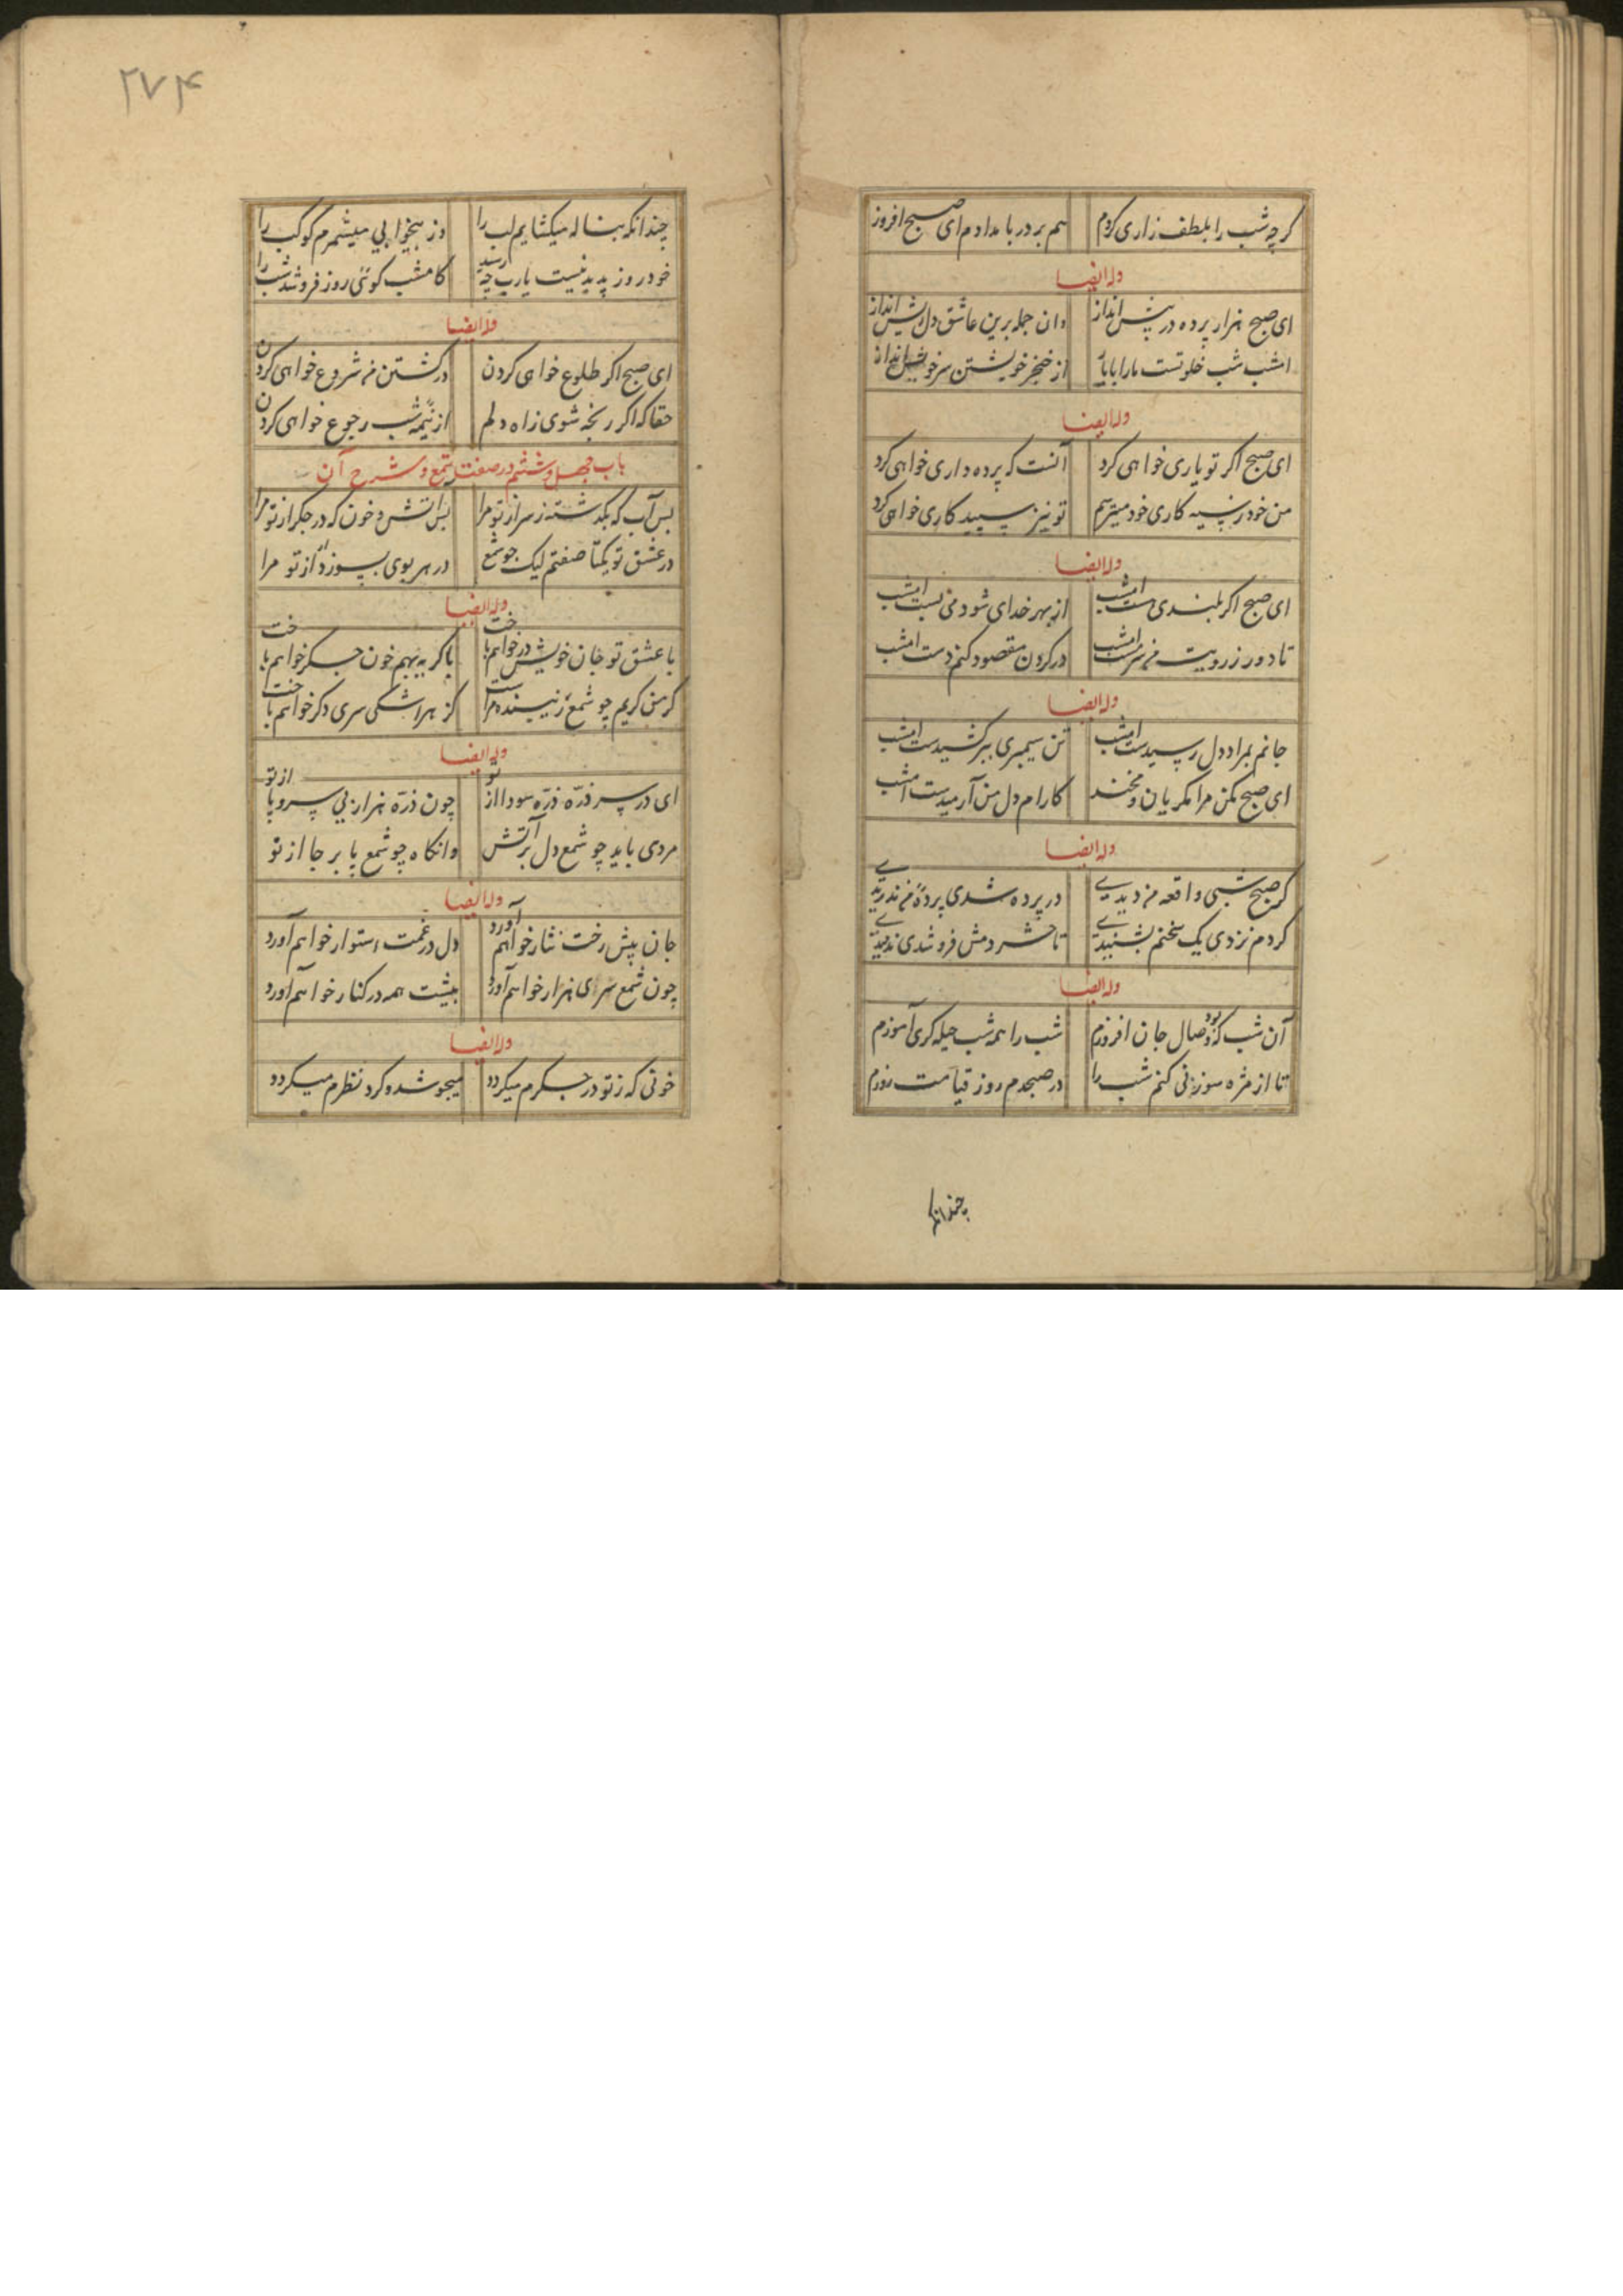 گرچه شب را بلطف زاری کردم هم بر در بامدادم ای صبح افروز
وله ایضا
ای صبح هزار پرده در پیش انداز وان جمله برین عاشق دل ریش انداز
امشب شب خلوتست ما را با یار از خنجر خویشتن سر خویش انداز
وله ایضا
ای صبح اگر تو یاری خواهی کرد آنست که پرده داری خواهی کرد
من خود ز سیه کاری خود میترسم تو نیز سپید کاری خواهی کرد
وله ایضا
ای صبح اگر بلندی هست امشب از بهر خدای شود منی بست امشب
تا دور ز رویت من سرمست امشب در گردن مقصود کنم دست امشب
وله ایضا
جانم بمراد دل رسیدست امشب تن سیمبری ببر کشیدست امشب
ای صبح مکن مرا مگریان و مخند کارام دل من آرمیدست امشب
وله ایضا
گر صبح شبی واقعه من دیدی در پرده شدی پردهٔ من ندریدی
گر دم نزدی یک سخنم بشنیدی تا حشر دمش فرو شدی ندمیدی
وله ایضا
آن شب که بود وصال جان افروزم شب را همه شب حیله گری آموزم
تا از مژه سوزنی کنم شب را در صبحدم روز قیامت دوزم
چندانکه
۲۷۴
چندانکه بناله میکشایم لب را وز بیخوابی میشمرم کوکب را
خود روز پدید نیست یارب چه رسید کامشب گوئی روز فرو شد شب را
وله ایضا
ای صبح اگر طلوع خواهی کردن در کشتن من شروع خواهی کردن
حقا که اگر رنجه شوی ز اه دلم از نیمه شب رجوع خواهی کردن
باب چهل و ششم در صفت شمع و شرح آن
بس آب که بگذشت ز سر از تو مرا بس اتش و خون که در جگر از تو مرا
در عشق تو یکتا صفتم لیک چو شمع در هر بوی بسوزد از تو مرا
وله ایضا
با عشق تو جان خویش در خواهم باخت با گریه بهم خون جگر خواهم باخت
گر من گریم چو شمع زیبنده مراست کز هر اشکی سری دگر خواهم باخت
وله ایضا
ای در سر ذرّه ذرّه سودا از تو چون ذرّه هزار بی سر و پا از تو
مردی باید چو شمع دل بر آتش وانگاه چو شمع پا بر جا از تو
وله ایضا
جان پیش رخت نثار خواهم آورد دل در غمت استوار خواهم آورد
چون شمع سرای هزار خواهم آورد پیشت همه در کنار خواهم آورد
وله ایضا
خونی که ز تو در جگرم میگردد میجوشد و گرد نظرم میگردد